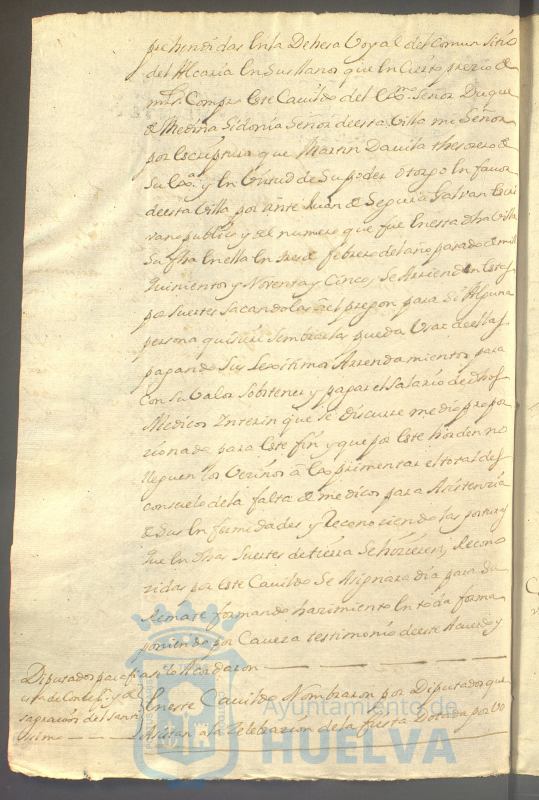 prehendidas en la Dehesa Boyal del Comun sitio
del Alcaria en sus llanos que en cierto precio de
mrs. Compro este Cavildo del Exmo. Señor Duque
de Medina Sidonia Señor de esta Villa mi Señor
por escriptura que Martin Davila thesorero de
su Exa. y en virtud de su poder otorgo en favor
de esta Villa por ante Juan de Segura Galvan escri
vano publico y del numero que fue en esta dha Villa
su fha en ella en de febrero del año pasado de mill
quinientos y Noventa y Cinco, se Arrienden estas
por suertes sacandolas al pregon para si Alguna
persona quisiere sembrarlas pueda Usar de ellas
pagando sus lexitimos Arrendamientos para
con su valor sobstener y pagar el salario de dhos
Medicos Interin que se discurre medio propor
zionado para este fin y que por este horden no
lleguen los vezinos a experimentar el total des
consuelo de la falta de medicos para Asistenzia
de sus enfermedades y Reconociendo las posturas
que en dhas suertes de tierra se hizieren, Recono
zidas por este Cavildo se Asignara dia para su
Remate formando hazimiento en toda forma
poniendo por Caveza testimonio de este Acuerdo y
asi lo Acordaron
Diputados para fi
esta de
sagracion del santi
simo
En este Cavildo Nombraron por Diputados que
Asistan a la Zelebrazion de la fiesta Dotada por
Ayuntamiento de
HUELVA